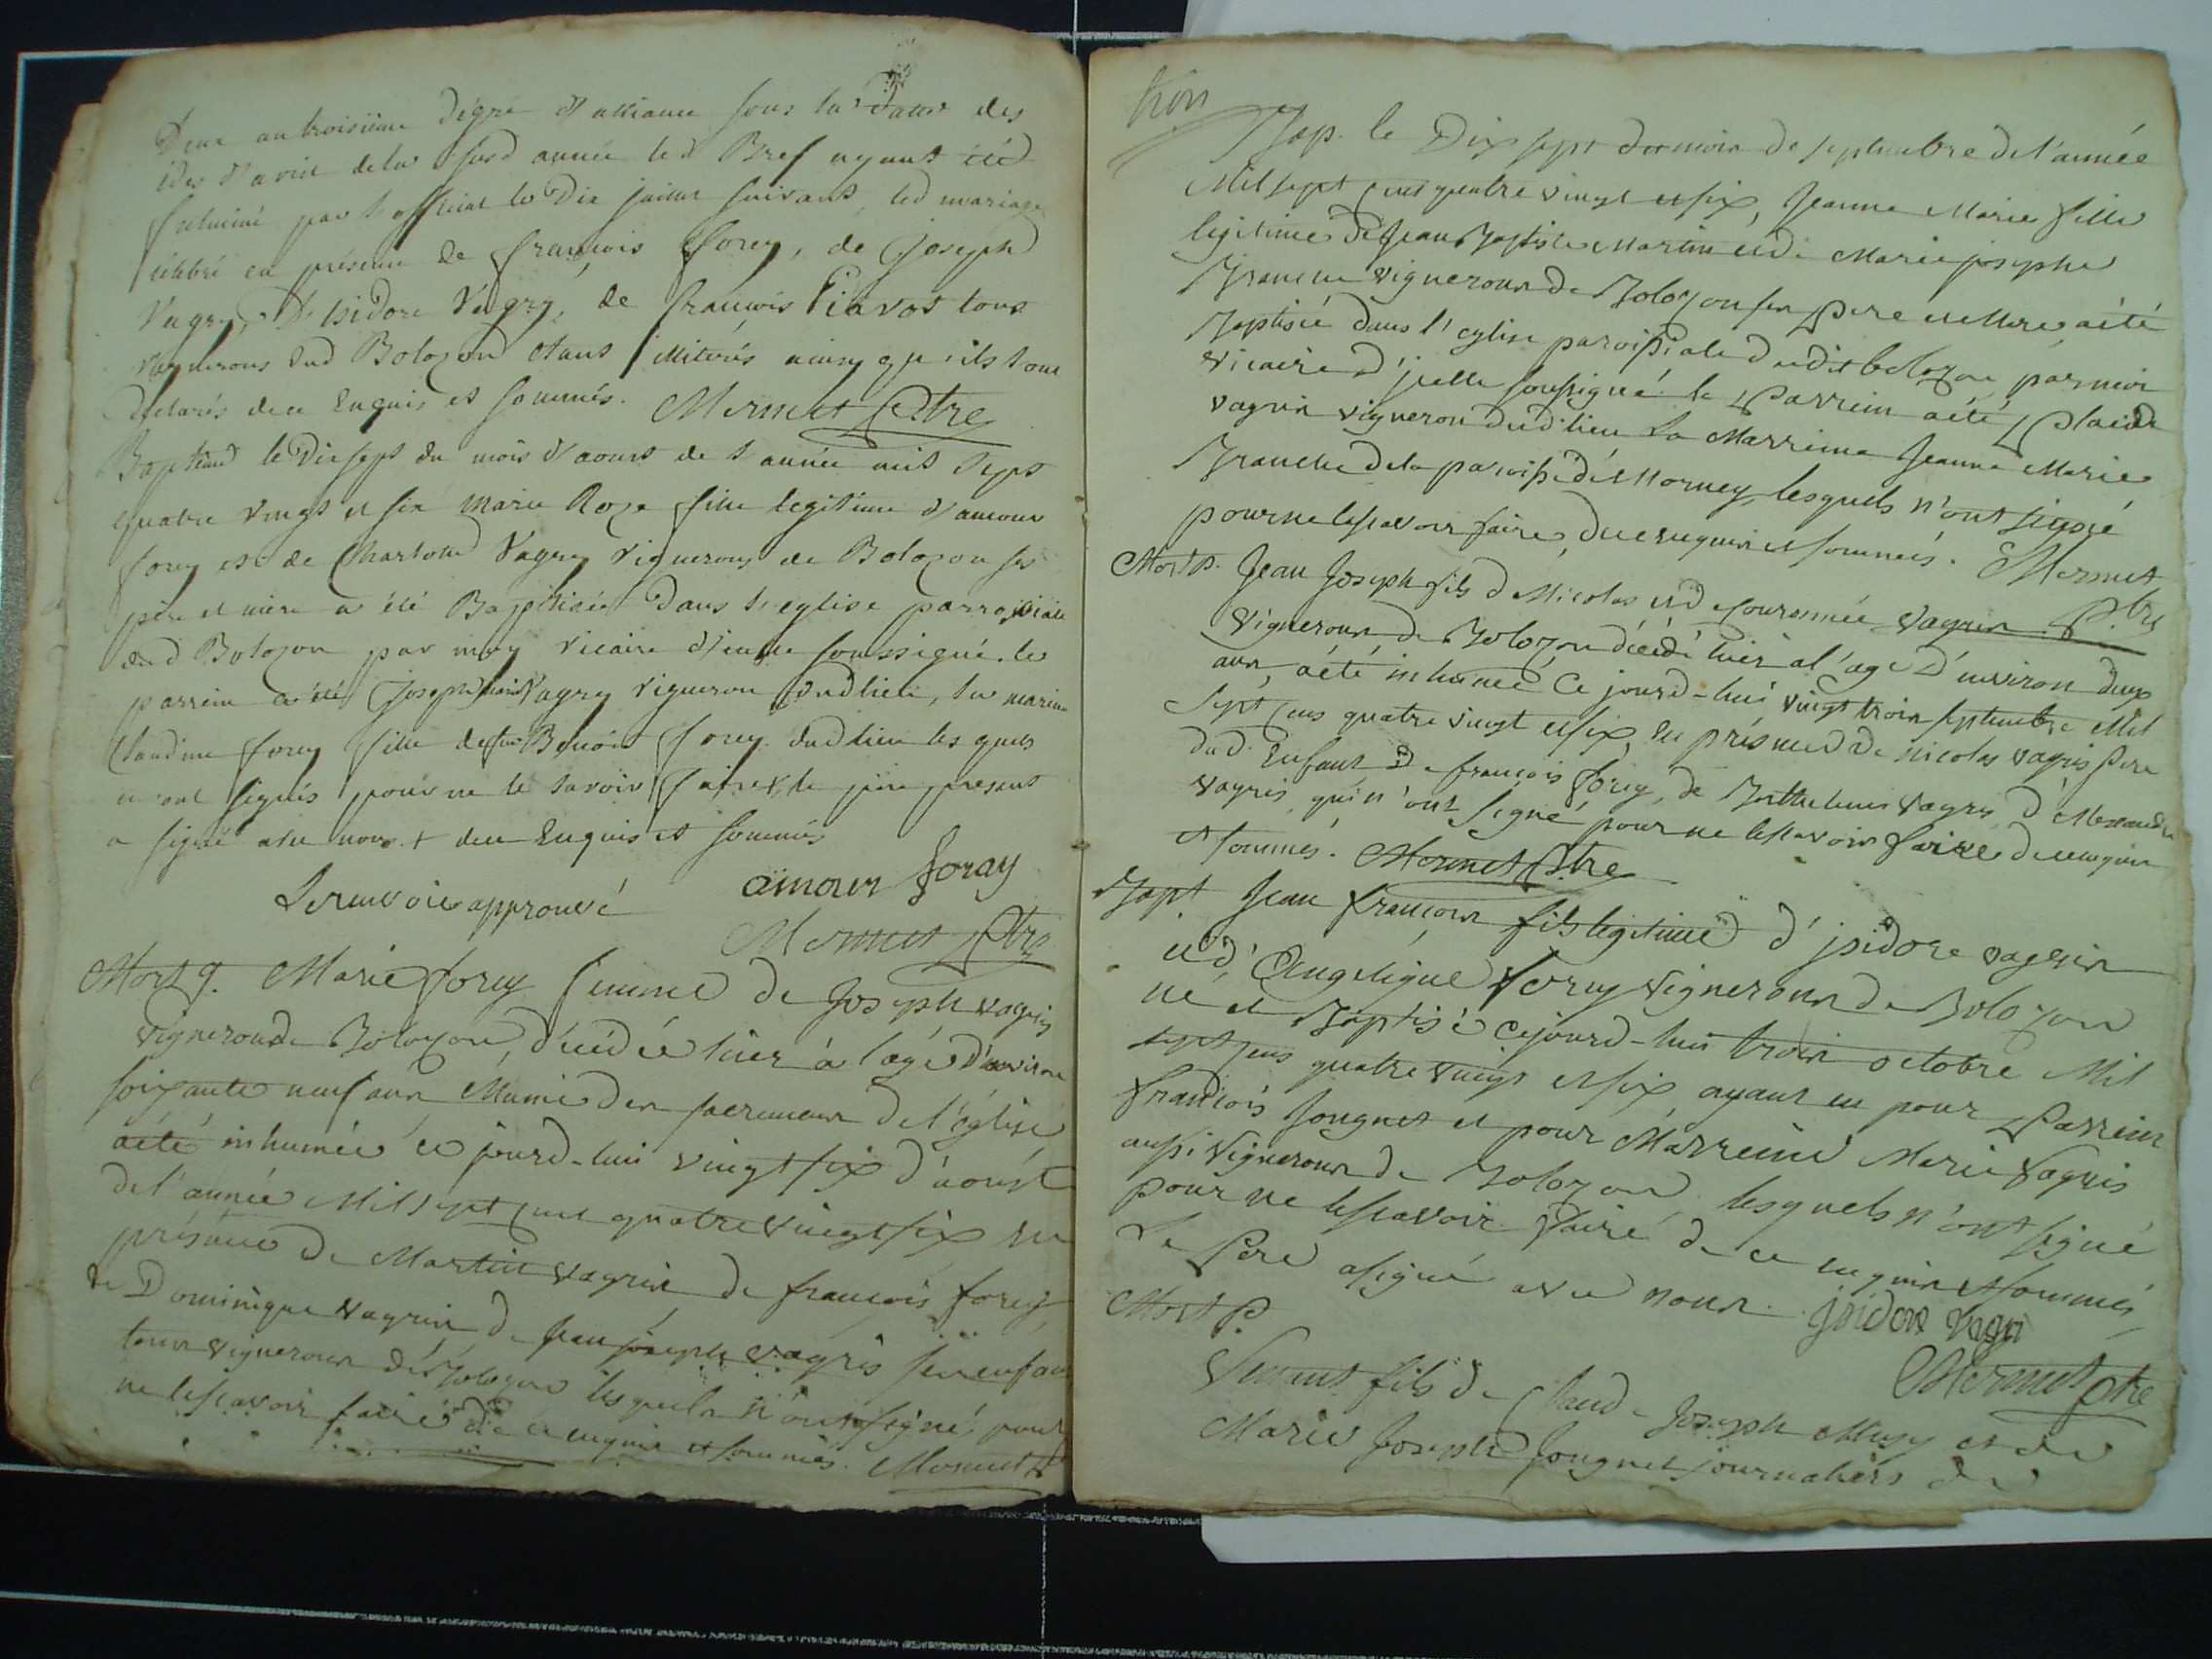 Deux au troisiéme dégré d'alliance sous la datte des
ides d'avril de la susd année led Bref ayant été
fulminé par l'official le dix juillet suivant, led mariage
célébré en présence de françois forey, de Joseph
Vagry, d'isidore Vagry, de françois Piavot tous
vignerons dud Bolozon étant illitérés ainsy qu'ils l'ont
declarés de ce Enquis et sommés. Mermet Ptre
Baptême le dixsept du mois d'aoust de l'année mil sept
quatre vingt et six Marie Roze fille legitime d'amour
forey et de Charlotte Vagry vignerons de Bolozon ses
père et mère a été Baptisée dans l'eglise parroissiale
dud Bolozon par moy vicaire d'icelle soussigné. le
parrein a été Joseph marie Vagry vigneron dudlieu, la marine
Claudine forey fille de feu Benoit forey dudlieu les quels
n'ont signés pour ne le savoir faire, le père present
a signé avec nous + de ce Enquis et sommés
Le renvoie approuvé amour foray
Mermet Ptre
Mort g. Marie forey femme de Joseph vagris
vigneron de Bolozon, décédée hier à l'age d'environ
soixante neuf ans Munie des sacremens de l'église
aété inhumée ce jourd-hui vingt six d'aoust
de l'année Mil sept cent quatre vingt six en
présence de Martin vagris de françois forey,
de Dominique vagris, de Jean joseph vagris son enfant
tous vignerons de Bolozon lesquels n'ont signé pour
ne lescavoir faire de ce enquis et sommés. Mermet
Bap. le Dix sept du mois de septembre de l'année
Mil sept cent quatre vingt et six, Jeanne Marie fille
legitime de Jean Baptiste Martin et de Marie josephe
Branche vignerons de Bolozon ses Pere et Mere, aété
Baptisée dans l'eglise paroissiale dudit bolozon par moi
vicaire d'icelle soussigné. le Parrein aété Placide
vagris vigneron dud. lieu La Marreine Jeanne Marie
Branche de la paroisse de Mornay, lesquels n'ont signé
pour ne lescavoir faire, de ce enquis et sommés. Mermet
Ptre
Mort p. Jean Joseph fils de Nicolas et de couronnée vagris
vignerons de Bolozon décédé hier a l'age d'environ deux
ans, aété inhumé Ce jourd-hui vingt trois septembre Mil
sept cens quatre vingt et six, en présence de nicolas vagris Pere
dud. Enfant de françois forey, de Barthelemi vagris d'Alexandre
vagris qui n'ont signé pour ne lescavoir faire de ce enquis
et sommés. Mermet Ptre
Bapt. Jean françois fils legitime d'jsidore vagris
et d'Angelique ferey vignerons de Bolozon
né et Baptisé cejourd-hui trois octobre Mil
sept cens quatre vingt et six ayant eu pour Parrein
françois Jougnet et pour Marreine Marie vagris
aussi vignerons de Bolozon lesquels n'ont signé
pour ne lescavoir faire de ce enquis et sommés,
Le Pere asigné avec nous. jsidore vagri
Mermet Ptre
Mort P.
Vincent fils de Claude Joseph Musy et de
Marie Joseph Jougnet journaliers de